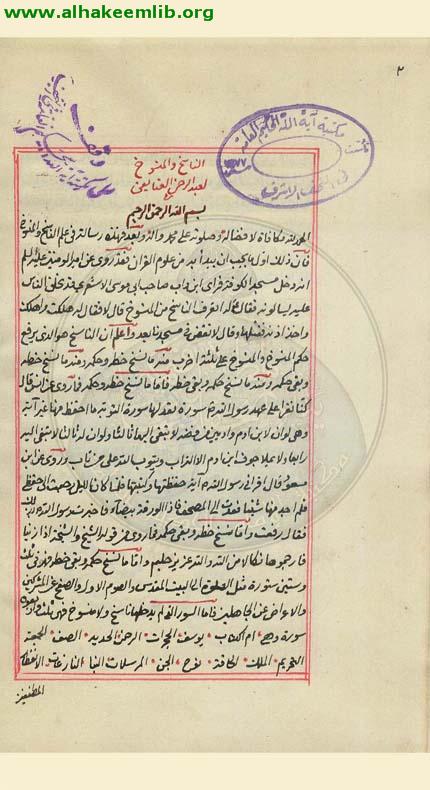 www.alhakeemlib.org
٢
مكتبة آية الله الحكيم العامة
في النجف الاشرف
وقف
الناسخ والمنسوخ
لعبد الرحمن العتايقي
بسم الله الرحمن الرحيم
الحمد لله مكافاة لافضاله وصلوته على محمد وآله وبعد فهذه رسالة في علم الناسخ والمنسوخ
فان ذلك اول ما يجب ان يبدأ به من علوم القران فقد روى عن امير المؤمنين عليه السلم
انه دخل مسجد الكوفة فراى ابن داب صاحب ابي موسى الاشعري وقد تحلق الناس
عليه يسالونه فقال له اتعرف الناسخ من المنسوخ قال لا فقال له هلكت واهلكت
واخذ اذنه ففتلها وقال لا تقض في مسجدنا بعد واعلم ان الناسخ هو الذي يرفع
حكم المنسوخ والمنسوخ على ثلثة اضرب منه ما نسخ خطه وحكمه ومنه ما نسخ خطه
وبقى حكمه ومنه ما نسخ حكمه وبقى خطه فاما ما نسخ خطه وحكمه فما روى عن انس قال
كنا نقرا على عهد رسول الله ص سورة نعدلها سورة التوبة ما احفظ منها غير آية
وهي لو ان لابن ادم واديين من فضة لابتغى اليهما ثالثا ولو ان له ثالثا لابتغى اليه
رابعا ولا يملا جوف ابن ادم الا التراب ويتوب الله على من تاب وروى عن ابن
مسعود قال اقراني رسول الله ص آية حفظتها وكتبتها فلما كان الليل رجعت الى حفظي
فلم اجد منها شيئا فغدوت الى المصحف فاذا الورقة بيضاء فاخبرت رسول الله ص بذلك
فقال رفعت واما ما نسخ خطه وبقى حكمه فما روى من قوله الشيخ والشيخة اذا زنيا
فارجموهما نكالا من الله والله عزيز حكيم واما ما نسخ حكمه وبقى خطه فهو في ثلث
وستين سورة مثل الصلوة الى البيت المقدس والصوم الاول والصفح عن المشركين
والاعراض عن الجاهلين فاما السور التي لم يدخلها ناسخ ولا منسوخ فهي ثلث واربعون
سورة وهي ام الكتاب يوسف الحجرات الرحمن الحديد الصف الجمعة
التحريم الملك الحاقة نوح الجن المرسلات النبا النازعات الانفطار
المطففين